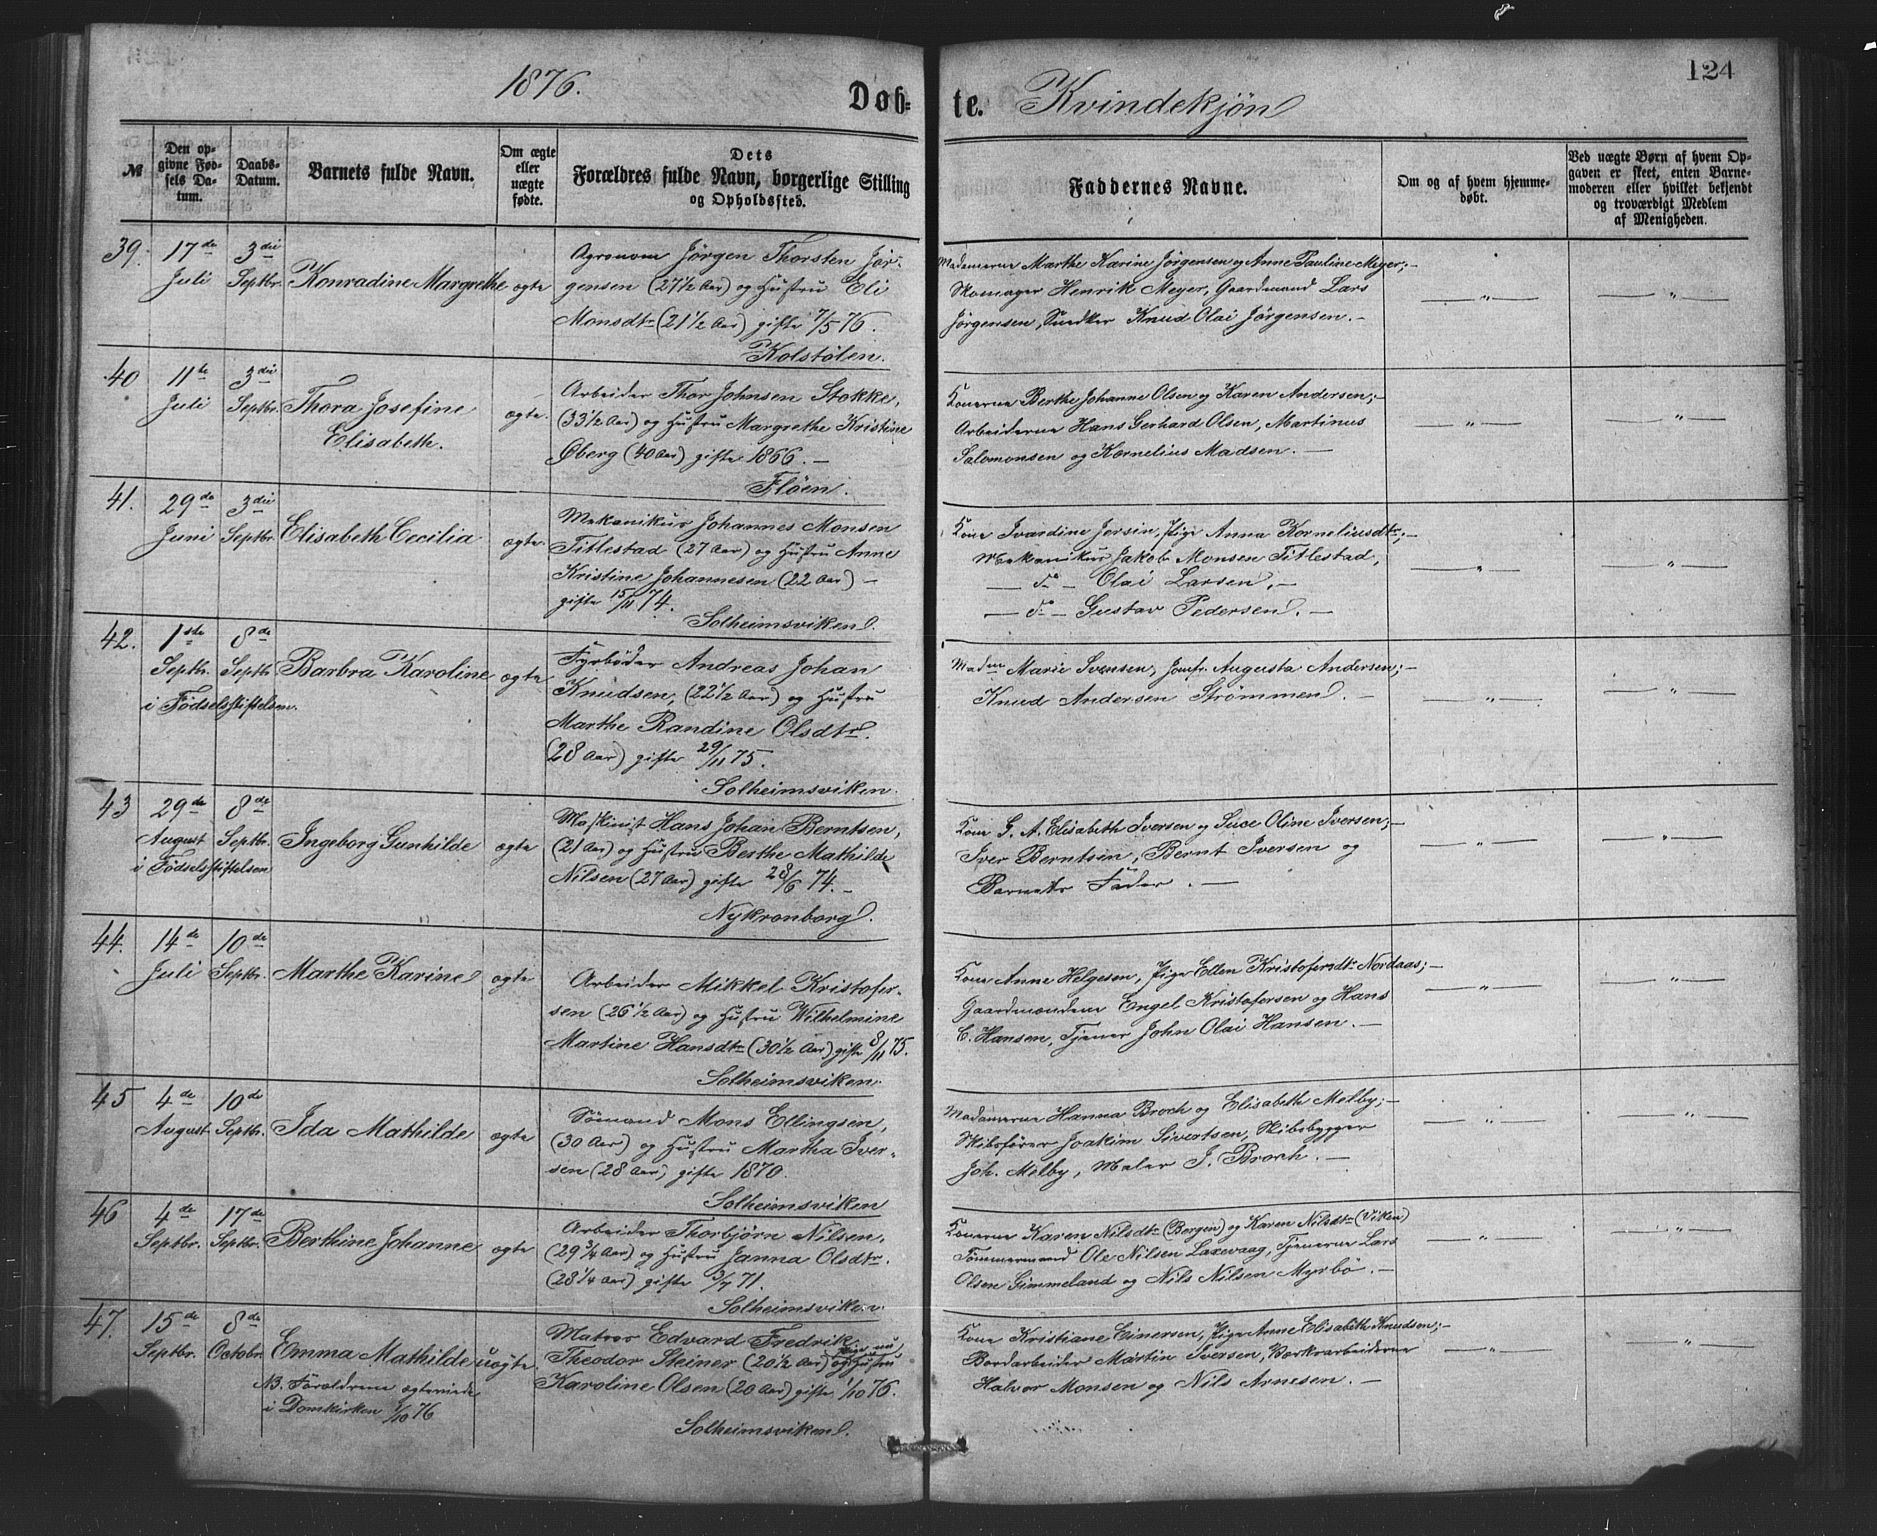 124
1876.
Döb-te. Kvindekjön
№
Den op-
givne Fød-
sels Da-
tum.
Daabs-
Datum.
Barnets fulde Navn.
Om ægte
eller
uægte
fødte.
Dets
Forældres fulde Navn, borgerlige Stilling
og Opholdssted.
Faddernes Navne.
Om og af hvem hjemme-
døbt.
Ved uægte Børn af hvem Op-
gaven er skeet, enten Barne-
moderen eller hvilket bekjendt
og troværdigt Medlem
af Menigheden.
39. 17de Juli 3die Septbr. Konradine Margrethe ægte
Agronom Jörgen Thorsten Jör-
gensen (27½ Aar) og Hustru Eli
Monsdtr (21½ Aar) gifte 7/5 76.
Kolstölen.
Madamerne Marthe Karine Jörgensen og Anne Pauline Meyer;—
Skomager Henrik Meyer, Gaardmand Lars
Jörgensen, Snedker Knud Olai Jörgensen.—
— " — — " —
40 11te Juli 3die Septbr. Thora Josefine
Elisabeth. ægte
Arbeider Thor Johnsen Stokke,
(33½ Aar) og Hustru Margrethe Kristine
Öberg (40 Aar) gifte 1866.—
Flöen.
Konerne Berthe Johanne Olsen og Karen Andersen;—
Arbeiderne Hans Gerhard Olsen, Martinus
Salomonsen og Kornelius Madsen.—
— " — — " —
41. 29de Juni 3die Septbr. Elisabeth Cecilia ægte
Mekanikus Johannes Monsen
Titlestad (27 Aar) og Hustru Anne
Kristine Johannesen (22 Aar)—
gifte 15/11 74.
Solheimsviken.
Kone Ivardine Jersin, Pige Anna Korneliusdtr;—
Mekanikus Jakob Monsen Titlestad,
— do — Olai Larsen,—
— do — Gustav Pedersen.—
— " — — " —
42. 1ste Septbr. 8de Septbr. Barbra Karoline ægte
i Födselsstiftelsen.
Fyrböder Andreas Johan
Knudsen, (22½ Aar) og Hustru
Marthe Randine Olsdtr.
(28 Aar) gifte 29/11 75.
Solheimsviken.
Madm Marie Svensen, Jomfr. Augusta Andersen;—
Knud Andersen Strömmen.—
— " — — " —
43 29de August 8de Septbr. Ingeborg Gunhilde ægte
i Födselsstiftelsen
Maskinist Hans Johan Berntsen,
(21 Aar) og Hustru Berthe Mathilde
Nilsen (27 Aar) gifte 28/6 74.—
Nykronborg.
Kone G. A. Elisabeth Iversen og Suce Oline Iversen;—
Iver Berntsen, Bernt Iversen og
Barnets Fader.—
— " — — " —
44. 14de Juli 10de Septbr. Marthe Karine ægte
Arbeider Mikkel Kristofer-
sen (26½ Aar) og Hustru Wilhelmine
Martine Hansdtr (30½ Aar) gifte 8/11 75.
Solheimsviken.
Kone Anne Helgesen, Pige Ellen Kristofersdtr Nordaas;—
Gaardmændene Engel Kristofersen og Hans
C. Hansen, Tjener John Olai Hansen.—
— " — — " —
45 4de August 10de Septbr. Ida Mathilde ægte
Sömand Mons Ellingsen,
(30 Aar) og Hustru Martha Iver-
sen (28 Aar) gifte 1870.
Solheimsviken
Madamerne Hanna Broch og Elisabeth Melby;—
Skibsförer Joakim Sivertsen, Skibsbygger
Joh. Melby, Maler J. Broch.—
— " — — " —
46 4de Septbr. 17de Septbr. Berthine Johanne ægte
Arbeider Thorbjörn Nilsen,
(29¾ Aar) og Hustru Janna Olsdtr.
(28¼ Aar) gifte 3/7 71.
Solheimsviken.
Konerne Karen Nilsdtr (Bergen) og Karen Nilsdtr (Viken)
Tömmermand Ole Nilsen Laxevaag, Tjenerne Lars
Olsen Gimmeland og Nils Nilsen Myrbö.—
— " — — " —
47. 15de Septbr. 8de Octobr. Emma Mathilde uægte.
NB. Foraldrene ægteviede
i Domkirken 1/10 76
Matros Edvard Fredrik
Theodor Steiner (20½ Aar) Pige, nu, og Hustru
Karoline Olsen (20 Aar) gifte 1/10 76.
Solheimsviken.
Kone Kristiane Einersen, Pige Anne Elisabeth Knudsen;—
Bordarbeider Martin Iversen, Værksarbeiderne
Halvor Monsen og Nils Arnesen.—
— " — — " —